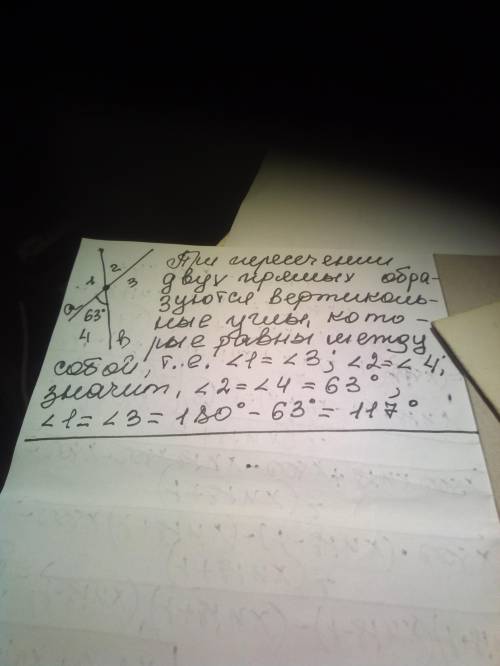 2
1
3
а
63°
4
в
При пересечении
двух прямых обра-
зуются вертикаль-
ные углы, кото-
рые равны между
собой, т.е. ∠1=∠3; ∠2=∠4,
значит, ∠2=∠4=63°,
∠1=∠3=180°-63°=117°